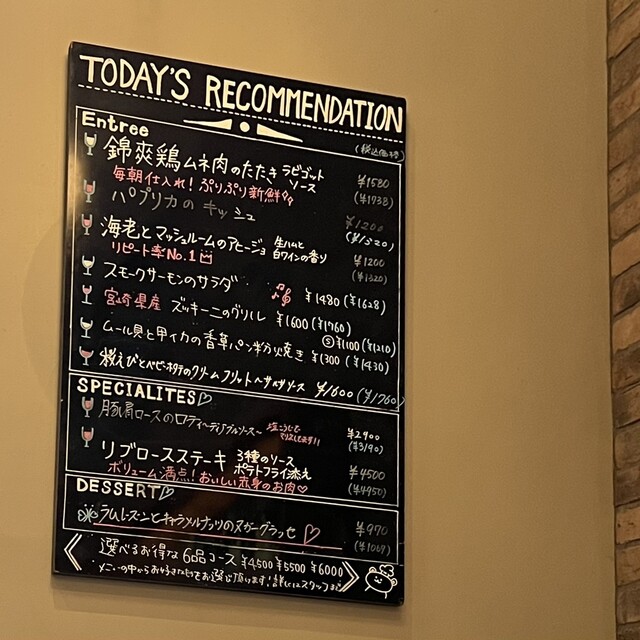 TODAY'S RECOMMENDATION
Entree
(税込価格)
錦爽鶏ムネ肉のたたき ラビゴットソース ¥1580 (¥1738)
毎朝仕入れ!ぷりぷり新鮮
パプリカのキッシュ ¥1200 (¥1320)
海老とマッシュルームのアヒージョ 生ハムと白ワインの香り ¥1200 (¥1320)
リピート率No.1
スモークサーモンのサラダ ¥1480 (¥1628)
宮崎県産 ズッキーニのグリル ¥1600 (¥1760)
Ⓢ¥1100 (¥1210)
ムール貝と甲イカの香草パン粉焼き ¥1300 (¥1430)
桜えびとベビーホタテのクリームフリット〜サルサソース ¥1600 (¥1760)
SPECIALITES
豚肩ロースのロティ〜ディアブルソース〜 塩こうじでマリネしてます!! ¥2900 (¥3190)
リブロースステーキ 3種のソース ポテトフライ添え ¥4500 (¥4950)
ボリューム満点!おいしい赤身のお肉♡
DESSERT
ラムレーズンとキャラメルナッツのヌガーグラッセ ¥970 (¥1067)
選べるお得な6品コース ¥4,500 ¥5500 ¥6000
メニューの中からお好きな物をお選び頂けます!詳しくはスタッフまで